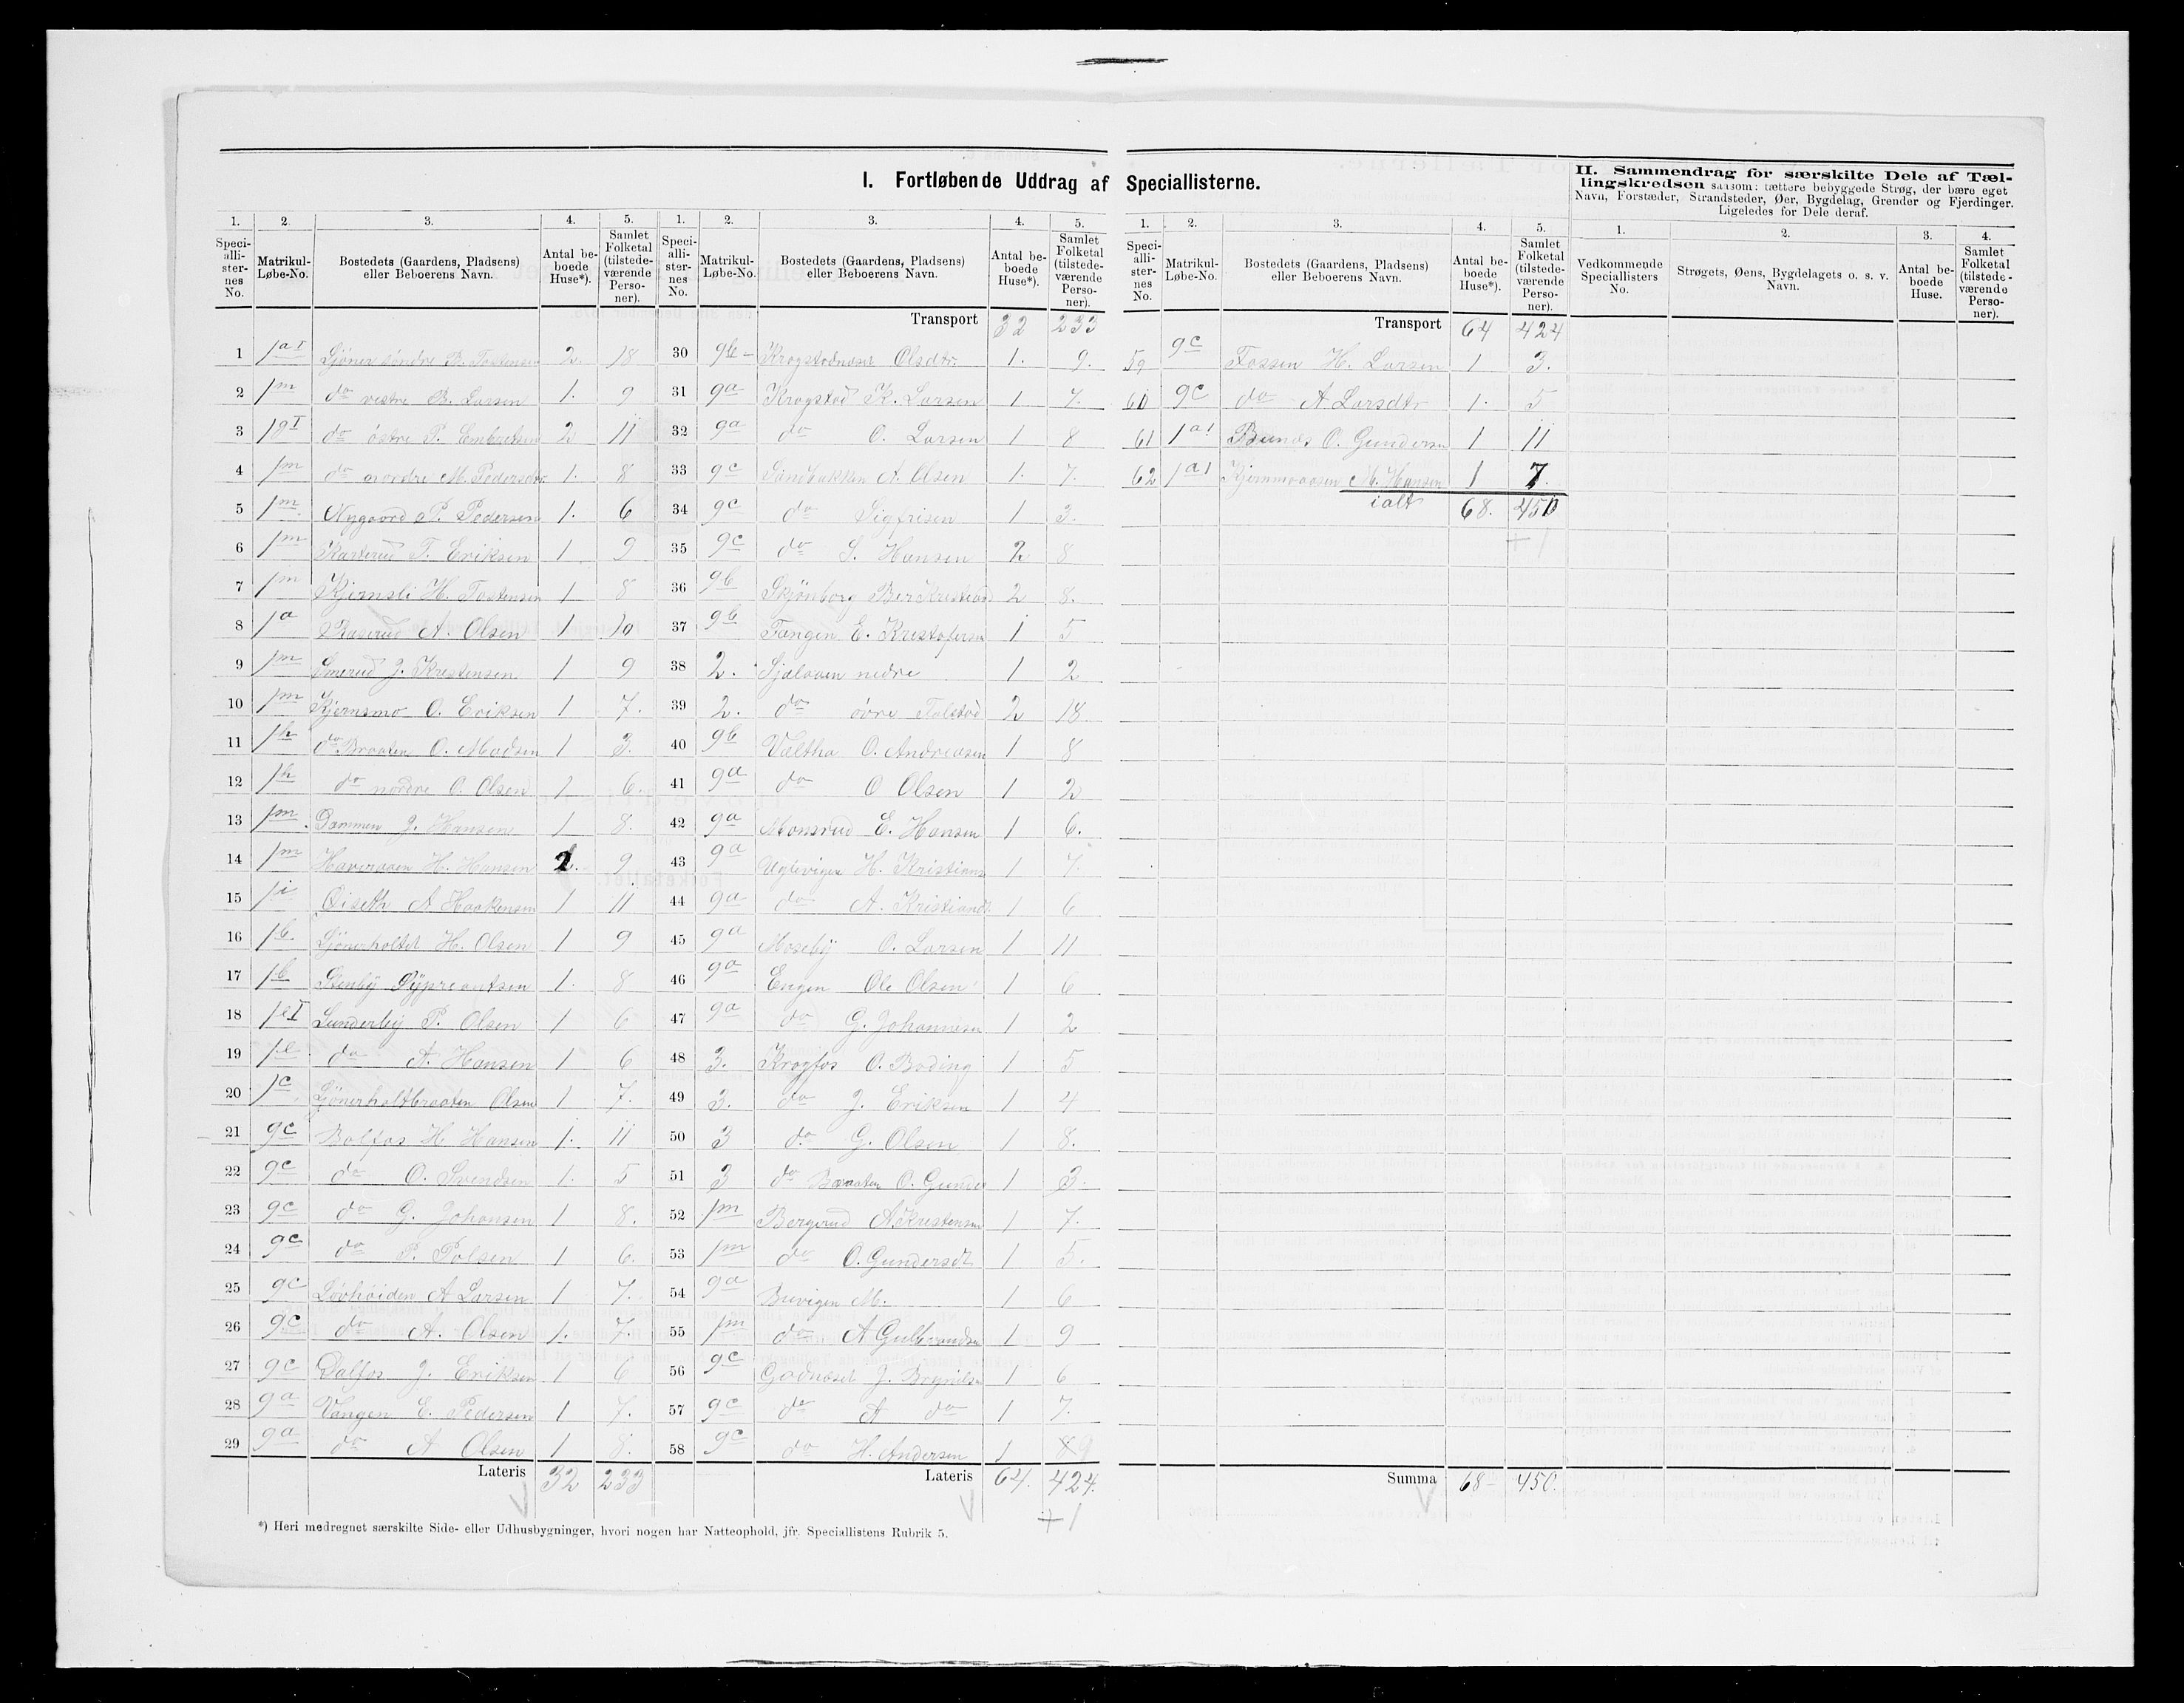 I. Fortløbende Uddrag af Speciallisterne.
II. Sammendrag for særskilte Dele af Tæl-
lingskredsen saasom: tættere bebyggede Strøg, der bære eget
Navn, Forstæder, Strandsteder, Øer, Bygdelag, Grender og Fjerdinger.
Ligeledes for Dele deraf.
1. 2 3. 4. 5.
Speci-alli-ster-nes No. Matrikul-Løbe-No. Bostedets (Gaardens, Pladsens) eller Beboerens Navn. Antal be-boede Huse*). Samlet Folketal (tilstede-værende Perso-ner).
1 1aI Gjöner söndre B. Tostensen 2. 18
2 1m do vestre B. Larsen 1. 9
3 1gI do östre P. Embretsen 2 11
4 1m do nordre M. Pedersdtr. 1. 8
5 1m Nygaard P. Pedersen 1. 6
6 1m T. Eriksen 1 9
7 1m Kjernsli H. Tostensen 1 8
8 1a A. Olsen 1 10
9 1m Smerud J. Kristensen 1 9
10 1m Kjernsmo O. Eriksen 1 7.
11 1h do Braaten O. Madsen 1 3.
12 1h do nordre O. Olsen 1 6.
13 1m Dammen J. Hansen 1 8.
14 1m Haveraaen H. Hansen 2. 9
15 1i Öiseth A Haakensen 1 11
16 1b. Gjönerholtet H. Olsen 1 9
17 1b Stenby 1. 8
18 1eI Sunderby P. Olsen 1 6
19 1e do A. Hansen 1 6
20 1c Gjönerholtbraaten Olsen 1 7.
21 9c Bolfos H. Hansen 1. 11
22 9c do O. Svendsen 1. 5
23 9c do G. Johansen 1 8.
24 9c do P. Polsen 1 6.
25 9c Lövhöiden A Larsen 1 7.
26 9c do A. Olsen 1. 7.
27 9c Dalfos J. Eriksen 1 6
28 9a Vangen E. Pedersen 1 7.
29 9a do A Olsen 1 8.
Lateris 32 233
1. 2. 3. 4. 5.
Speci-alli-ster-nes No. Matrikul-Løbe-No. Bostedets (Gaardens, Pladsens) eller Beboerens Navn. Antal be-boede Huse*). Samlet Folketal (tilstede-værende Perso-ner).
Transport 32 233
30 9b Krogstadnæset Olsdtr. 1. 9.
31 9a Krogstad K. Larsen 1 7.
32 9a do O. Larsen 1 8
33 9c Sandbakken A. Olsen 1. 7.
34 9c do Sigfrisen 1 3.
35 9c do S. Hansen 2 8
36 9b Skjönborg 2 8.
37 9b Tangen E. Kristofersen 1 5
38 2. Sjølaaen nedre 1 2
39 2. do övre Falstad 2 18.
40 9b Væltha O. Andreasen 1 8
41 9a do O Olsen 1 2
42 9a Monsrud E. Hansen 1 6.
43 9a Uglevigen H. Kristians 1 7.
44 9a do A. Kristiands 1 6
45 9a Moseby O. Larsen 1 11
46 9a Engen Ole Olsen 1 6
47 9a do G. Johannesen 1 2
48 3. Krogfos O. Boding 1 5
49 3. do J. Eriksen 1 4
50 3 do G. Olsen 1 8.
51 3 do Braaten O. Gunder 1 3.
52 1m Bergerud A. Kristensen 1 7.
53 1m do O. Gundersdt 1 5.
54 9a Buvigen M. 1 6
55 1m do A Gulbrandsen 1 9
56 9c Gadnæset J. 1 6
57 9c do A do 1 7.
58 9c do H. Andersen 1 9
Lateris 64. 424.
+1
1. 2. 3. 4. 5.
Speci-alli-ster-nes No. Matrikul-Løbe-No. Bostedets (Gaardens, Pladsens) eller Beboerens Navn. Antal be-boede Huse*). Samlet Folketal (tilstede-værende Perso-ner).
Transport 64 424
59 9c Fossen H. Larsen 1 3.
60 9c do A Larsdtr 1. 5
61 1a1 Bunes O. Gundersen 1 11
62 1a1 Kjernmoosen M. Hansen 1 7.
ialt 68. 450
+1
Summa 68 450.
1. 2. 3. 4.
Vedkommende Speciallisters No. Strøgets, Øens, Bygdelagets o. s. v. Navn. Antal be-boede Huse. Samlet Folketal (tilstede-værende Perso-ner).
*) Heri medregnet særskilte Side- eller Udhusbygninger, hvori nogen har Natteophold, jfr. Speciallistens Rubrik 5.